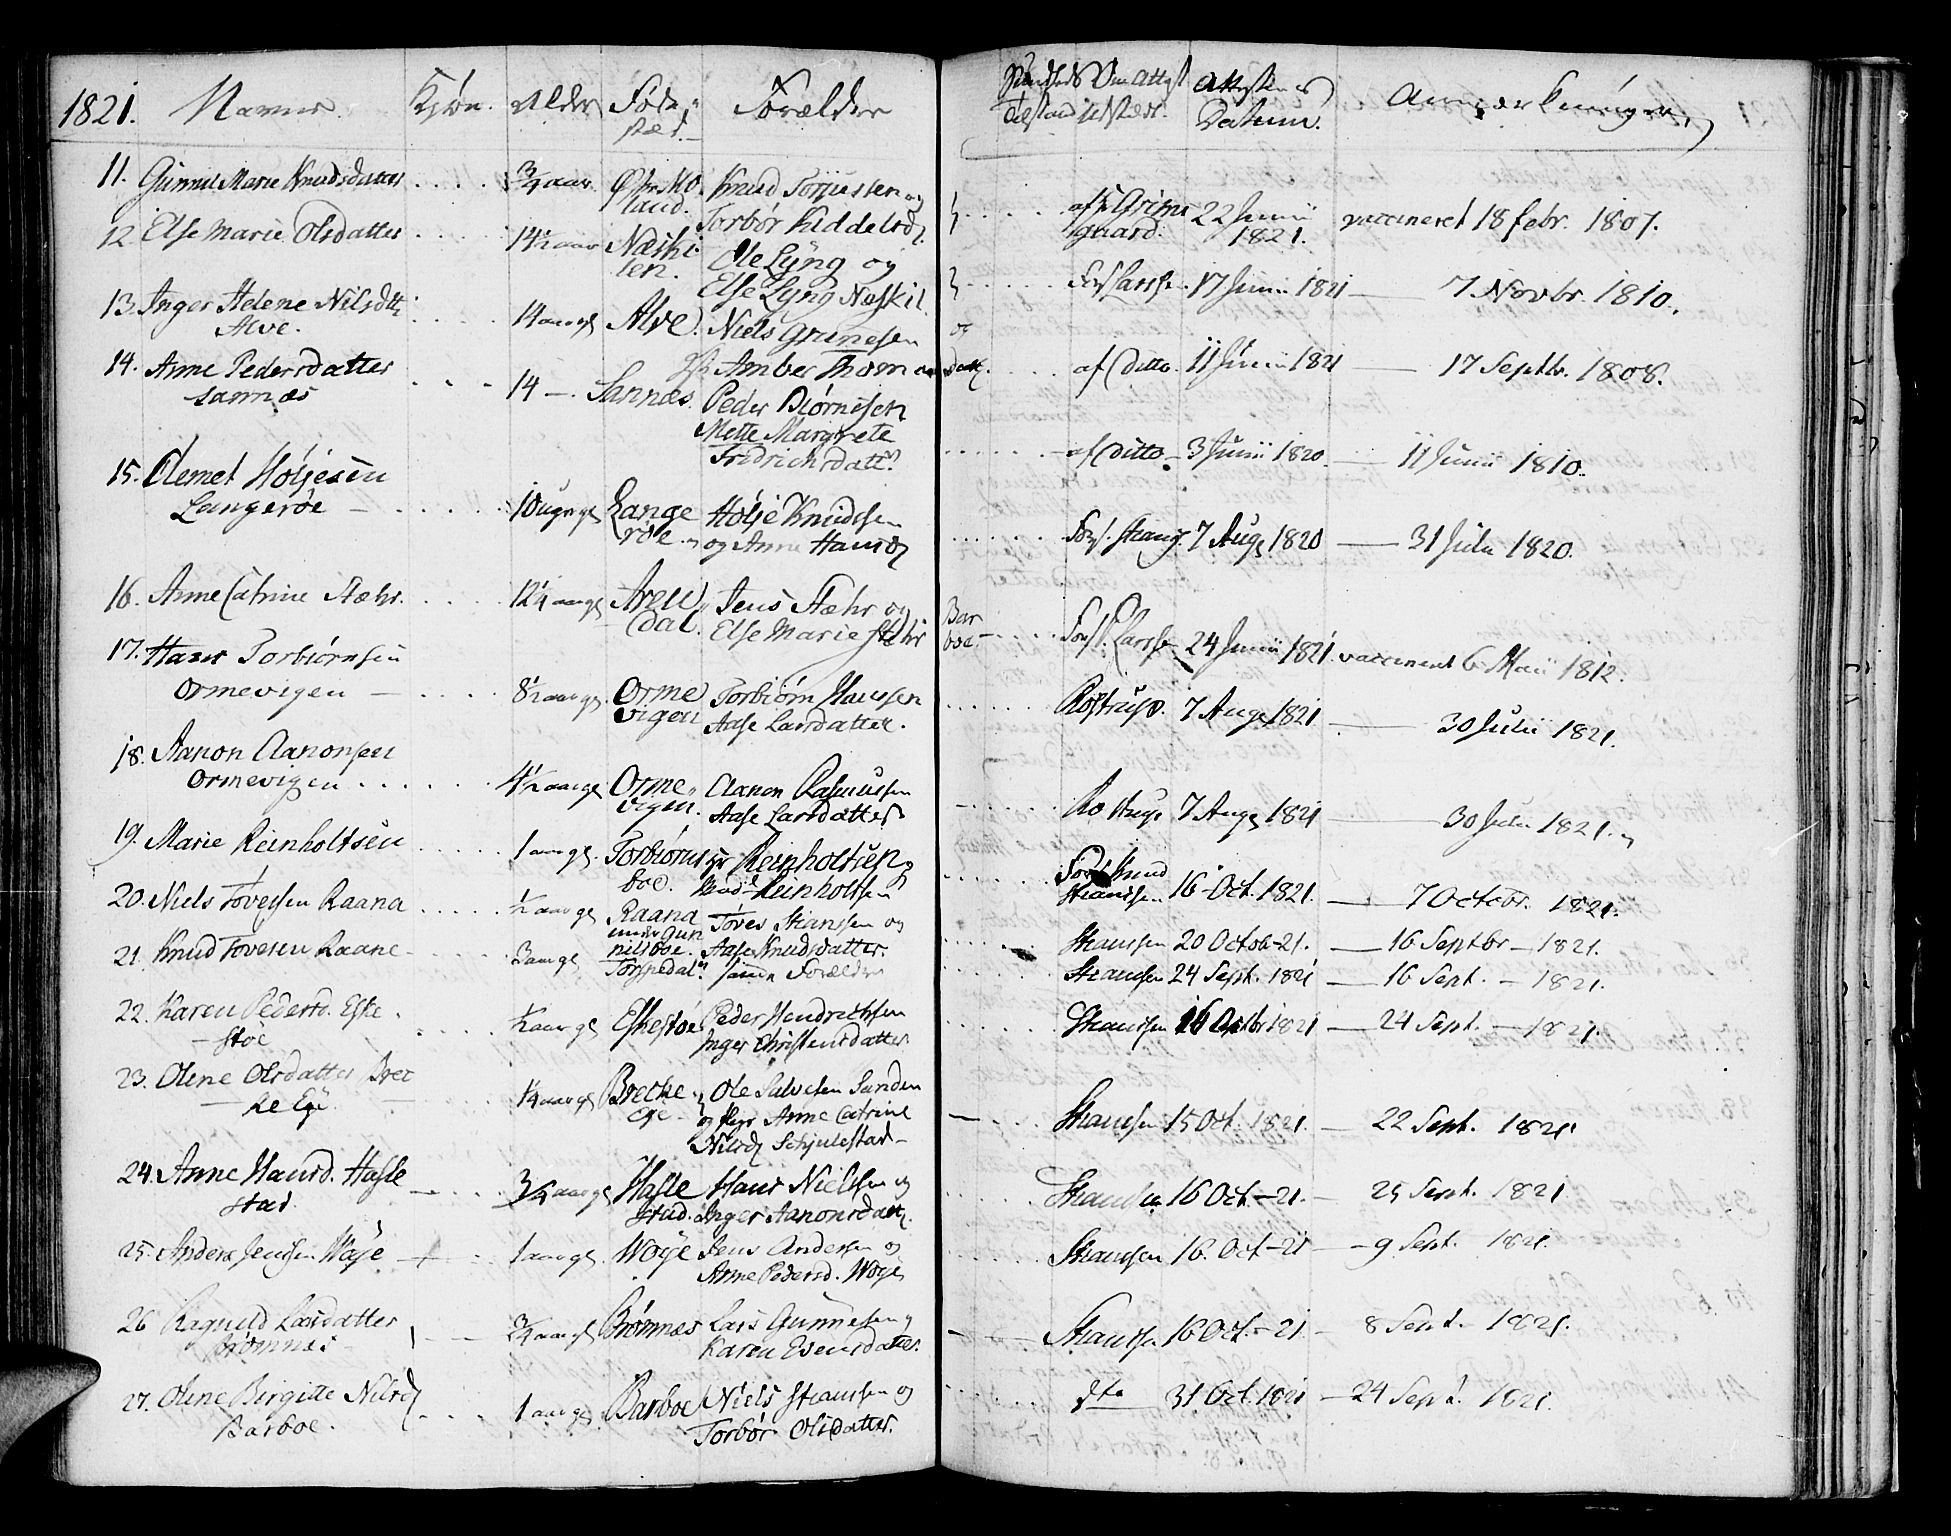 1821. Navne. Kjøn. Alder Føde-
sted.
Forældre
11. Gunnil Marie Knudsdatter ¾ aar. Øfre Mo
land. Knud Torjussen og
Torbør Kiddelsd.
12. Else Marie Olsdatter 14½ aar Næski
len. Ole Lÿng og
Else Lÿng Næskil.
13. Inger Helene Nilsdtt
Alve. 14 aarge Alve. Niels Grunesen
Amber Thom
14. Anne Pedersdatter
Sannæs 14 —. Sannæs. Peder Biørnesen
Mette Margrete
Fridrichsdatt.
15. Clemet Holjesen
Langerøe — 10 ugrge Lange
røe. Holje Knudsen
og Anne Hansd.
16. Anne Catrine Stæhr. 12¼ aarge Aren
dal. Jens Stæhr og
Else Marie Stæhr
17. Hans Torbiørnsen
Ormevigen — 8½ aarge. Orme
vigen Torbiørn Hansen
Aase Larsdatter.
18. Aanon Aanonsen
Ormevigen 4½ aarge Orme
vigen. Aanon Rasmussen
Aase Larsdatter
19. Marie Reinholtsen 1 aarge. Torbiørns
boe. Hr Reinholtsen
Mad. Reinholtsen
20. Niels Tovesen Raana ½ aarge Raana
under Gun
nilsboe. Toves Stiansen og
Aase Knudsdatter.
21. Knud Tovesen Raane 3 aarge Forældre
22. Karen Pedersd. Eske
støe ½ aarge Eskestøe Peder Hendrichsen
Inger Christensdatter
23. Olene Olsdatter Brec
ke Eje ¼ aarge Brecke
Eje Ole Salvesen Sanden
og Anne Catrine
Nilsd. Schjulestad
24. Anne Hansd. Hasle
stad. ¾ aarge Hasle
stad. Hans Nielsen og
Inger Aanonsdatt.
25. Anders Jensen Woje 1 aarge. Woje Jens Andersen og
Anne Pedersd. Woje
26 Ragnild Larsdatter
Brømnes ¾ aarge Brømnæs Lars Gunnesen
Karen Evensdatter.
27. Olene Birgitte Nilsd.
Barboe. 1 aarge. Barboe Niels Stiansen og
Torbør Olsdatter.
Attestens
Datum. Anmærkninger
af Grims
gaard. 22 Junii
1821. vaccineret 18 febr. 1807.
Larssen. 17 Junii 1821 — 7 Novbr. 1810.
og
af Ditto. 11 Junii 1821 — 17 Septbr. 1808.
af Ditto — 3 Junii 1820. — 11 Junii 1810.
7 Aug 1820 — 31 Julii 1820.
Bar
boe. Larssen 24 Junii 1821. vaccineret 6 Maii 1812.
Rostrup. 7 Aug 1821 — 30 Julii 1821.
Rostrup 7 Aug. 1821 — 30 Julii 1821.
Knud
Stiansen 16 Oct. 1821. — 7 Octobr. 1821.
Stiansen 20 Octob. 21. — 16 Septbr — 1821.
Stiansen 24 Sept. 1821 — 16 Sept. — 1821.
Stiansen 16 Octbr 1821 — 24 Sept. — 1821.
Stiansen 15 Oct. 1821. — 22 Sept. 1821
Stiansen 16 Oct — 21. — 25 Sept. 1821
Stiansen 16. Oct — 21 — 9 Sept. 1821.
Stiansen 16 Oct. — 21. — 8 Sept. 1821.
dto 31 Oct. 1821 — 24 Sept. 1821.